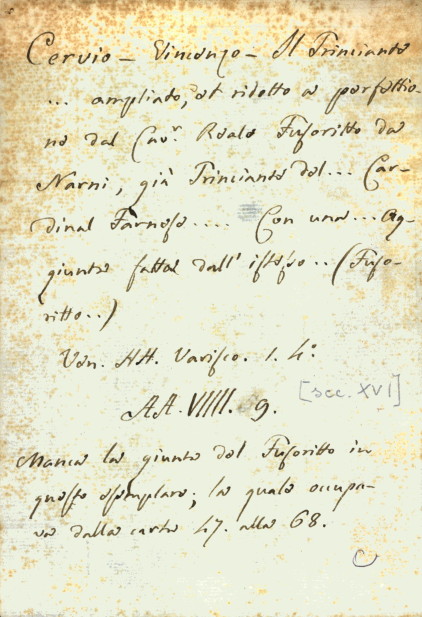 Cervio - Vincenzo - Il Trinciante
... ampliato, et ridotto a perfettio-
ne dal Cavr. Reale Fusoritto da
Narni, già Trinciante del ... Car-
dinal Farnese .... Con una ... Ag-
giunta fatta dall' istesso .. (Fuso-
ritto ..)
Ven. HH. Varisco. 1. 4º
AA. VIIII. 9.
[sec. XVI]
Manca la giunta del Fusoritto in
questo esemplare; la quale occupa-
va dalla carta 47. alla 68.